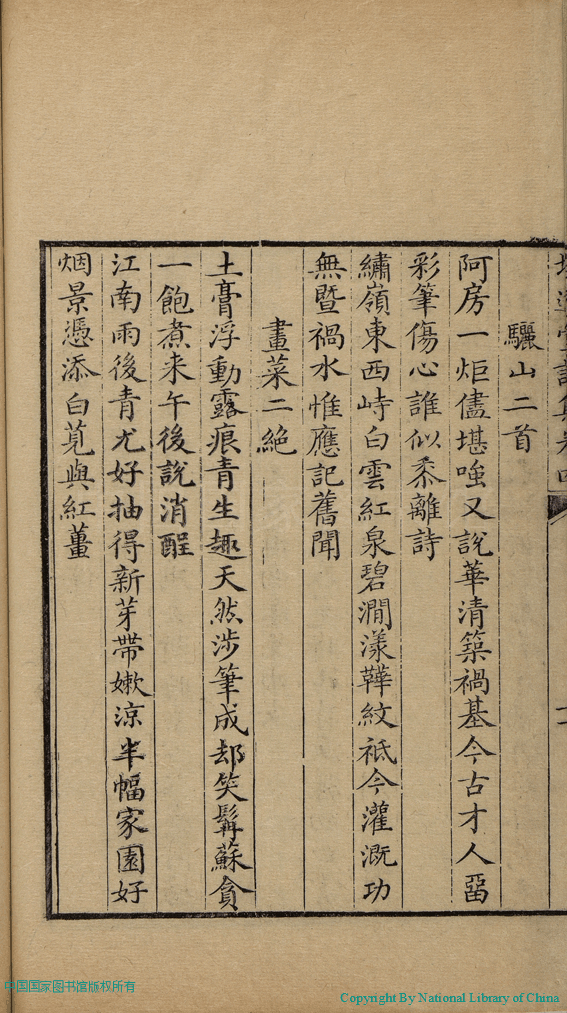 驪山二首
阿房一炬儘堪嗤又說華清築禍基今古才人留
彩筆傷心誰似黍離詩
繡嶺東西峙白雲紅泉碧澗漾鞾紋祗今灌溉功
無暨禍水惟應記舊聞
畫菜二絶
土膏浮動露痕青生趣天然涉筆成却笑髯蘇貪
一飽煮来午後說消酲
江南雨後青尤好抽得新芽帶嫰凉半幅家園好
烟景憑添白莧與紅薑
中国国家图书馆版权所有
Copyright By National Library of China